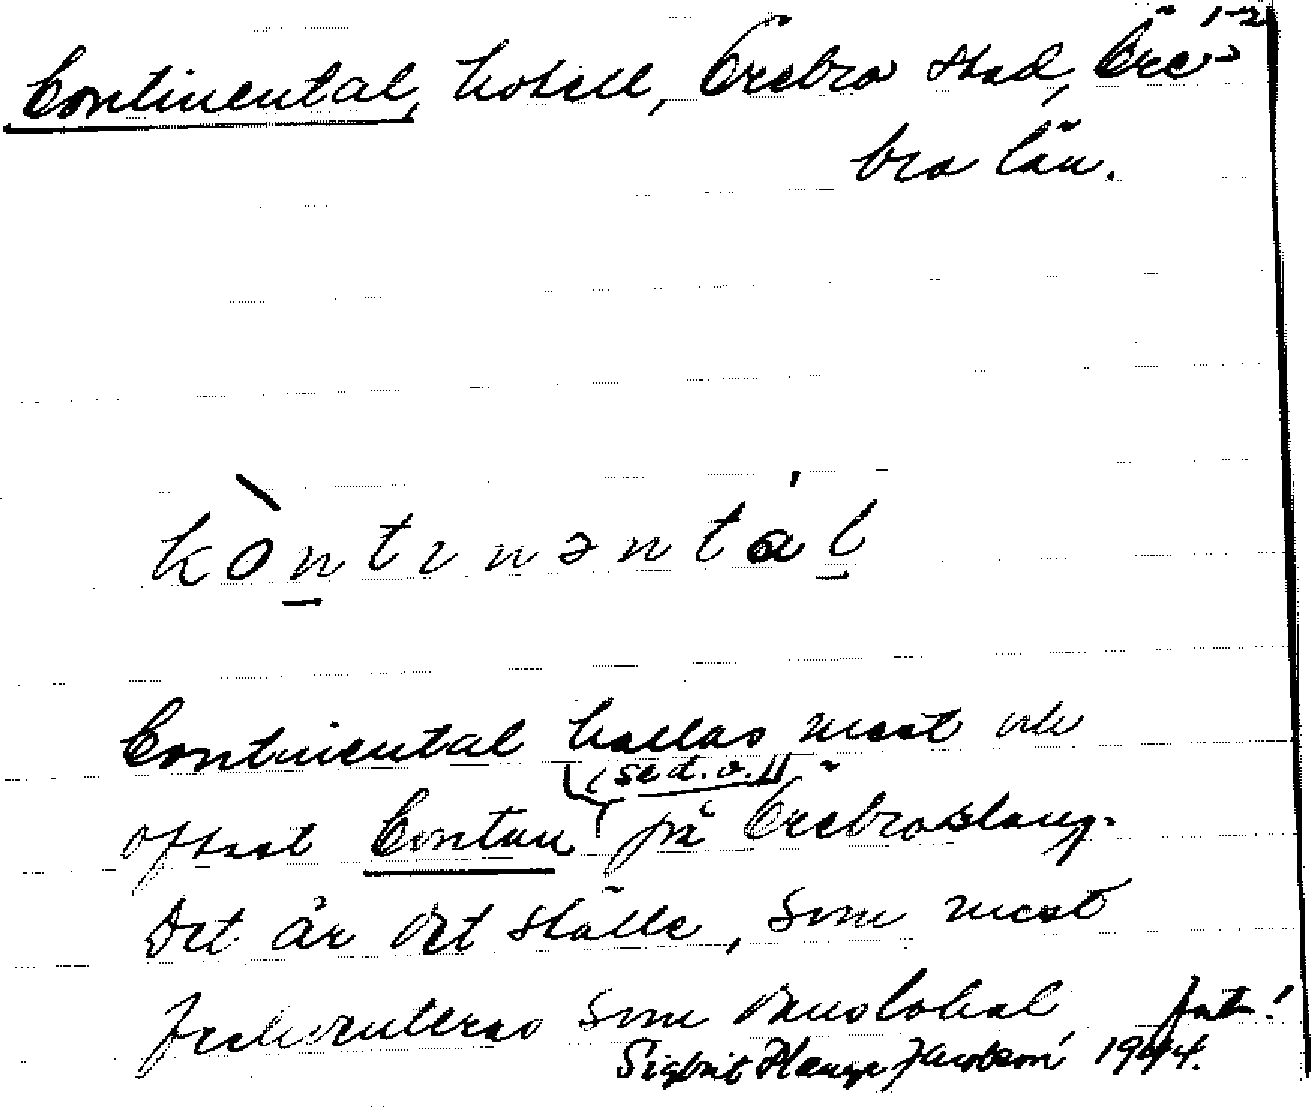 1-2
Continental, hotell, Örebro stad, Öre-
bro län.
kòntınəntál
Continental kallas mest och
(se d. o.)
oftast Contan på Örebroslang.
Det är det ställe, som mest
frekventeras som danslokal
Sigbrit Jacobson 1944.